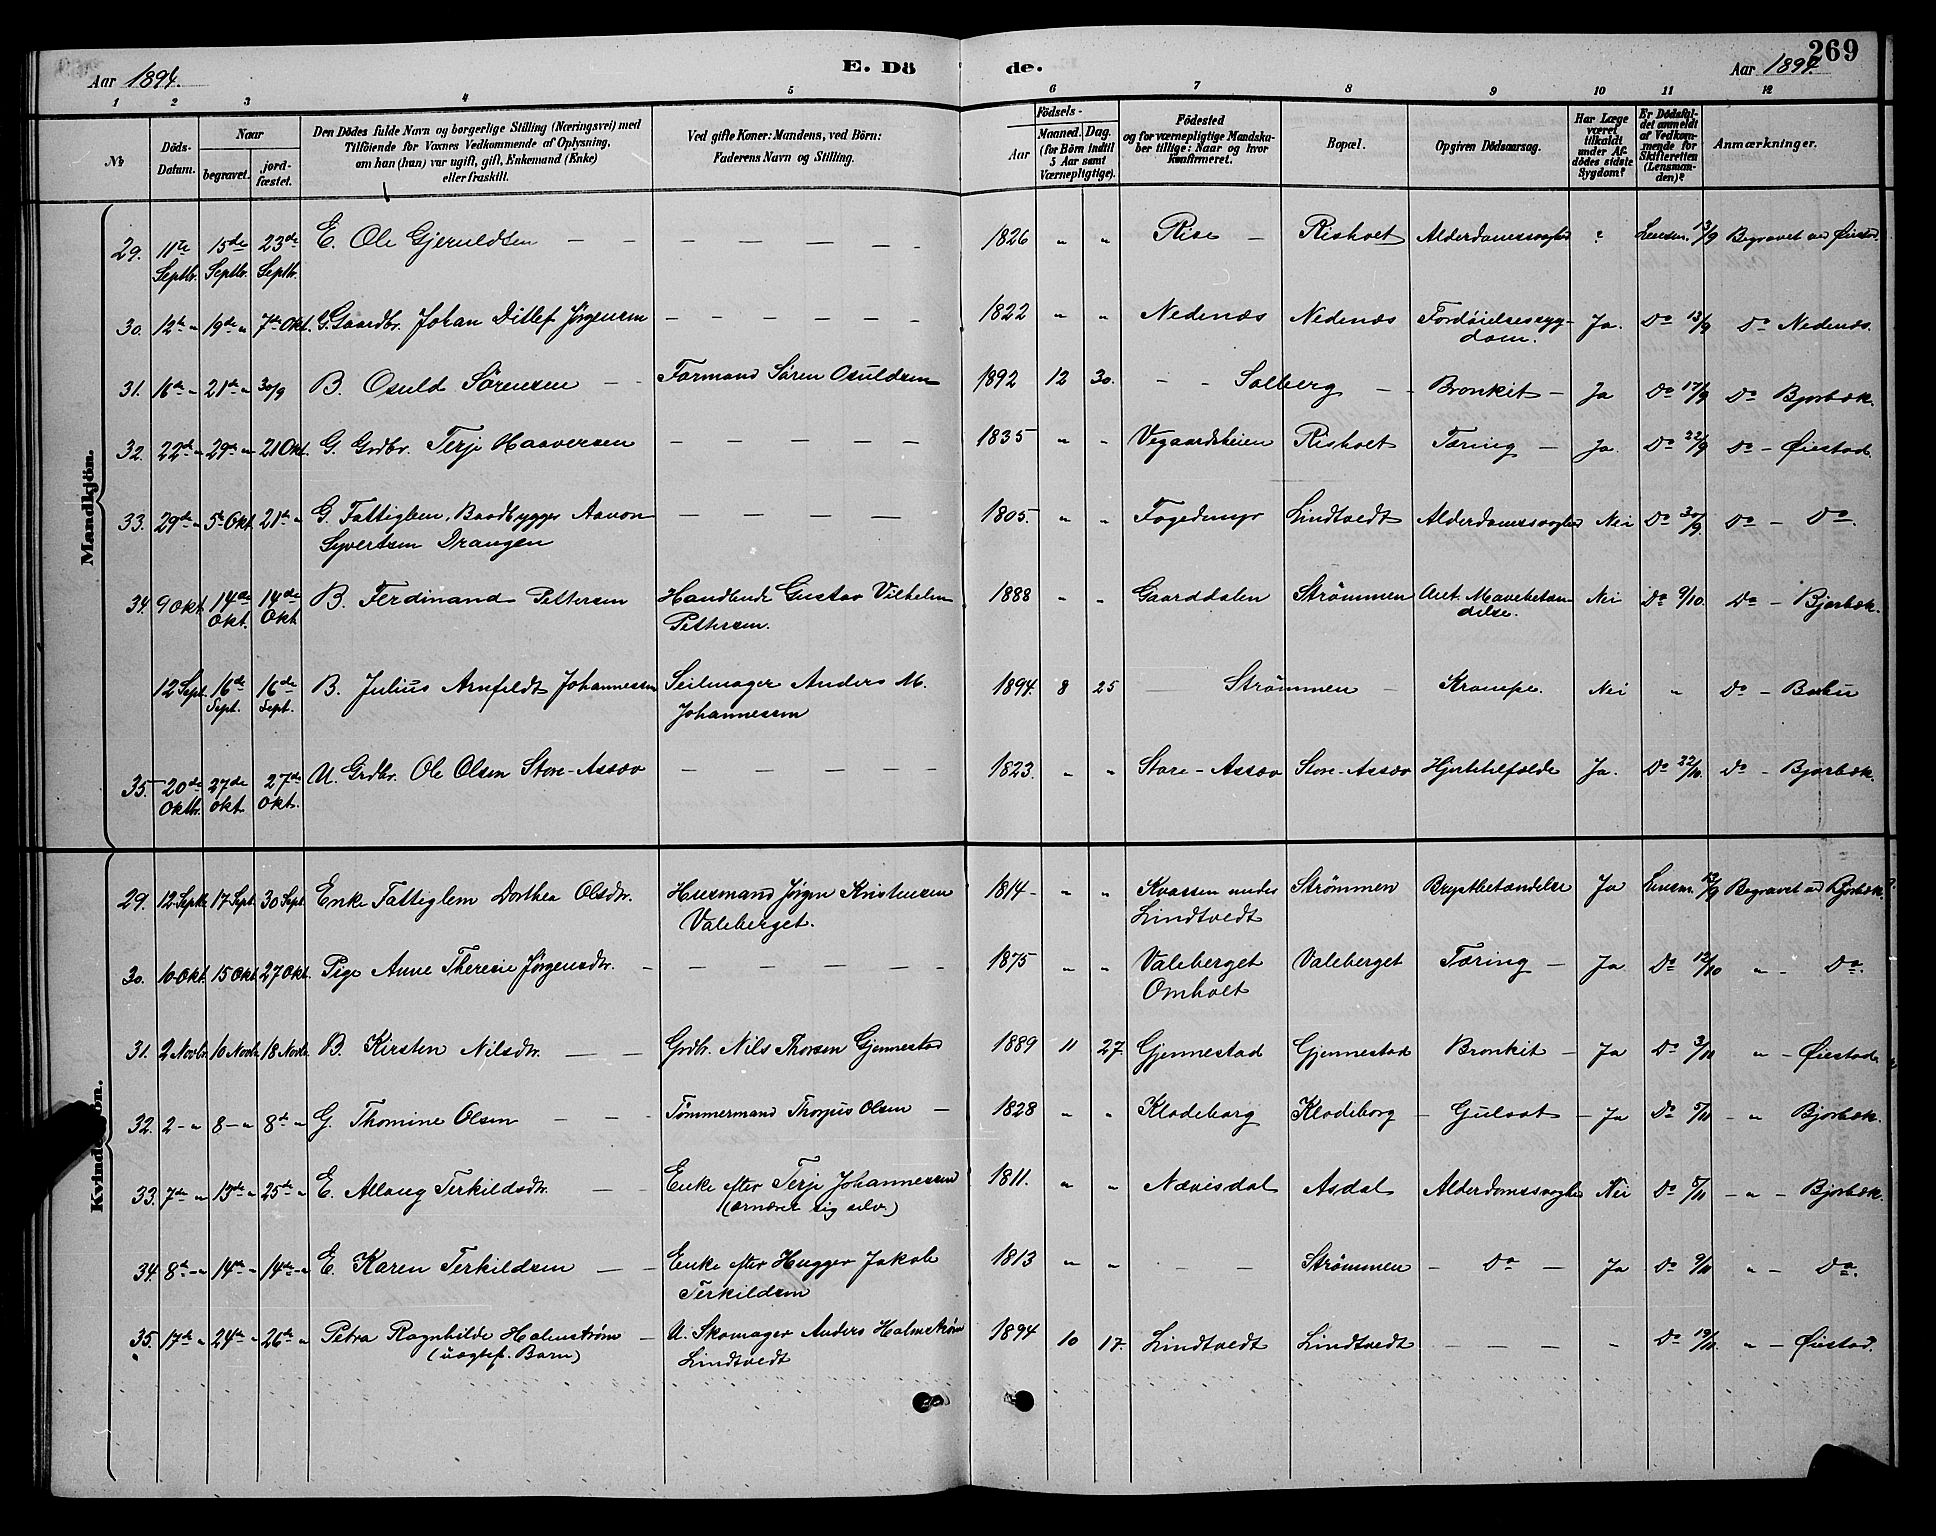 269
Aar 1894. E. Dö de. Aar 1894.
1 2 3 4 5 6 7 8 9 10 11 12
No
Döds-Datum.
Naar
begravet.
jord-fæstet.
Den Dödes fulde Navn og borgerlige Stilling (Næringsvei) med
Tilföiende for Voxnes Vedkommende af Oplysning,
om han (hun) var ugift, gift, Enkemand (Enke)
eller fraskilt.
Ved gifte Koner: Mandens, ved Börn:
Faderens Navn og Stilling.
Födsels-
Aar
Maaned. Dag.
(for Börn indtil
5 Aar samt
Værnepligtige).
Födested
og for værnepligtige Mandska-
ber tillige: Naar og hvor
Konfirmeret.
Bopæl.
Opgiven Dödsaarsag.
Har Læge
været
tilkaldt
under Af-
dödes sidste
Sygdom?
Er Dödsfal-
det anmeldt
af Vedkom-
mende for
Skifteretten
(Lensman-
den)?
Anmærkninger.
Mandkjön.
29. 11te Septbr. 15de Septbr. 23de Septbr. E. Ole Gjeruldsen — — — — — — — 1826 " " Rise — Risholt Alderdomssvaghed ? Lensm. 13/9 Begravet ved Øiestad
30. 12te " 19de " 7de Okt. G. Gaardbr. Johan Ditlef Jørgensen — — — — — 1822 " " Nedenæs Nedenæs Fordøielsessyg-
dom. Ja. Do 13/9 Do Nedenæs.
31. 16de " 21de " 30/9 B. Osuld Sørensen — — Formand Søren Osuldsen 1892 12 30. — — Solberg — Bronkit — Ja Do 17/9 Do Bjorbæk.
32. 22de " 29de " 21 Okt. G. Grdbr. Terje Haaversen — — — — — 1835 " " Vegaardsheien Risholt Tæring — Ja. Do 22/9 Do — Øiestad.
33. 29de " 5te Okt. 21de " G. Fattiglem, Baadbygger Aanon
Syvertsen Drangen — — — — — 1805. " " Lindtvedt Alderdomssvaghed Nei Do 30/9. Do — Do.
34. 9 Okt. 14de Okt. 14de Okt. B. Ferdinand Pettersen Handlende Gustav Vilhelm
Pettersen. 1888 " " Gaarddalen Strømmen Ant. Mavebetæn-
delse. Nei Do 9/10. Do — Bjorbæk.
12 Sept. 16de Sept. 16de Sept. B. Julius Arnfeldt Johannessen Seilmager Anders M.
Johannessen 1894. 8 25 — Strømmen — Krampe. Nei " Do —
35. 20de Oktbr. 27de Okt. 27de Okt. U. Grdbr. Ole Olsen Store-Assæv — — — — — 1823. " " Store-Assæv Store-Assæv Hjertetilfælde Ja. Do 22/10. Do — Bjorbæk.
Kvindekjön.
29. 12 Septbr. 17 Sept. 30 Sept. Enke Fattiglem Dorthea Olsdtr. Husmand Jørgen Kristensen
Valeberget. 1814 — " " Kvassen under
Lindtvedt Strømmen Brystbetændelse Ja Lensm. 12/9 Begravet ved Bjorbæk.
30. 10 Okt. 15 Okt. 27 Okt. Pige Anne Theresie Jørgensdtr. — — — — — — 1875 " " Valeberget
Omholt Valeberget Tæring — Ja Do 12/10 " Do.
31. 2 Novbr. 10 Novbr. 18 Novbr. B. Kirsten Nilsdtr. — — Grdbr. Nils Thorsen Gjennestad 1889 11 27. Gjennestad Gjennestad Bronkit — Ja Do 3/11 " — Øiestad
32. 2 — " 8 — " 8de " G. Thomine Olsen — — — Tømmermand Thorjus Olsen — 1828 " " Klodeborg Klodeborg — Gulsot — Ja Do 5/11 — " Bjorbæk.
33. 7de " 13de " 25de " E. Allaug Terkildsdtr. — — Enke efter Terje Johannessen
(ernærer sig selv) 1811. " " Nævisdal Asdal Alderdomssvaghed Nei Do 5/11 — " — Bjorbæk.
34. 8de " 14de " 14de " E. Karen Terkildsen — — Enke efter Hugger Jakob
Terkildsen 1813 " " — — Strømmen — Do — Ja Do 9/11 " — Do.
35. 17de " 24de " 26de " Petra Ragnhilde Holmstrøm —
(uægtef. Barn) U. Skomager Anders Holmstrøm
Lindtvedt 1894 10 17. Lindtvedt Lindtvedt — — — " Do 19/11. " — Øiestad.